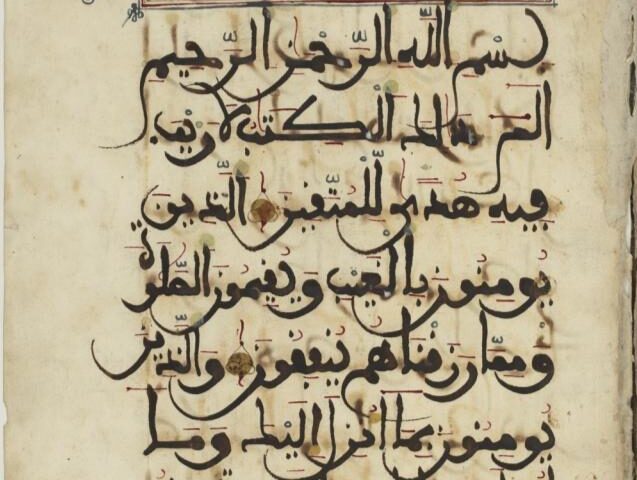 بسم الله الرحمن الرحيم
الم ذلك الكتب لا ريب
فيه هدى للمتقين الذين
يومنون بالغيب ويقيمون الصلوة
ومما رزقناهم ينفقون والذين
يومنون بما انزل اليك وما